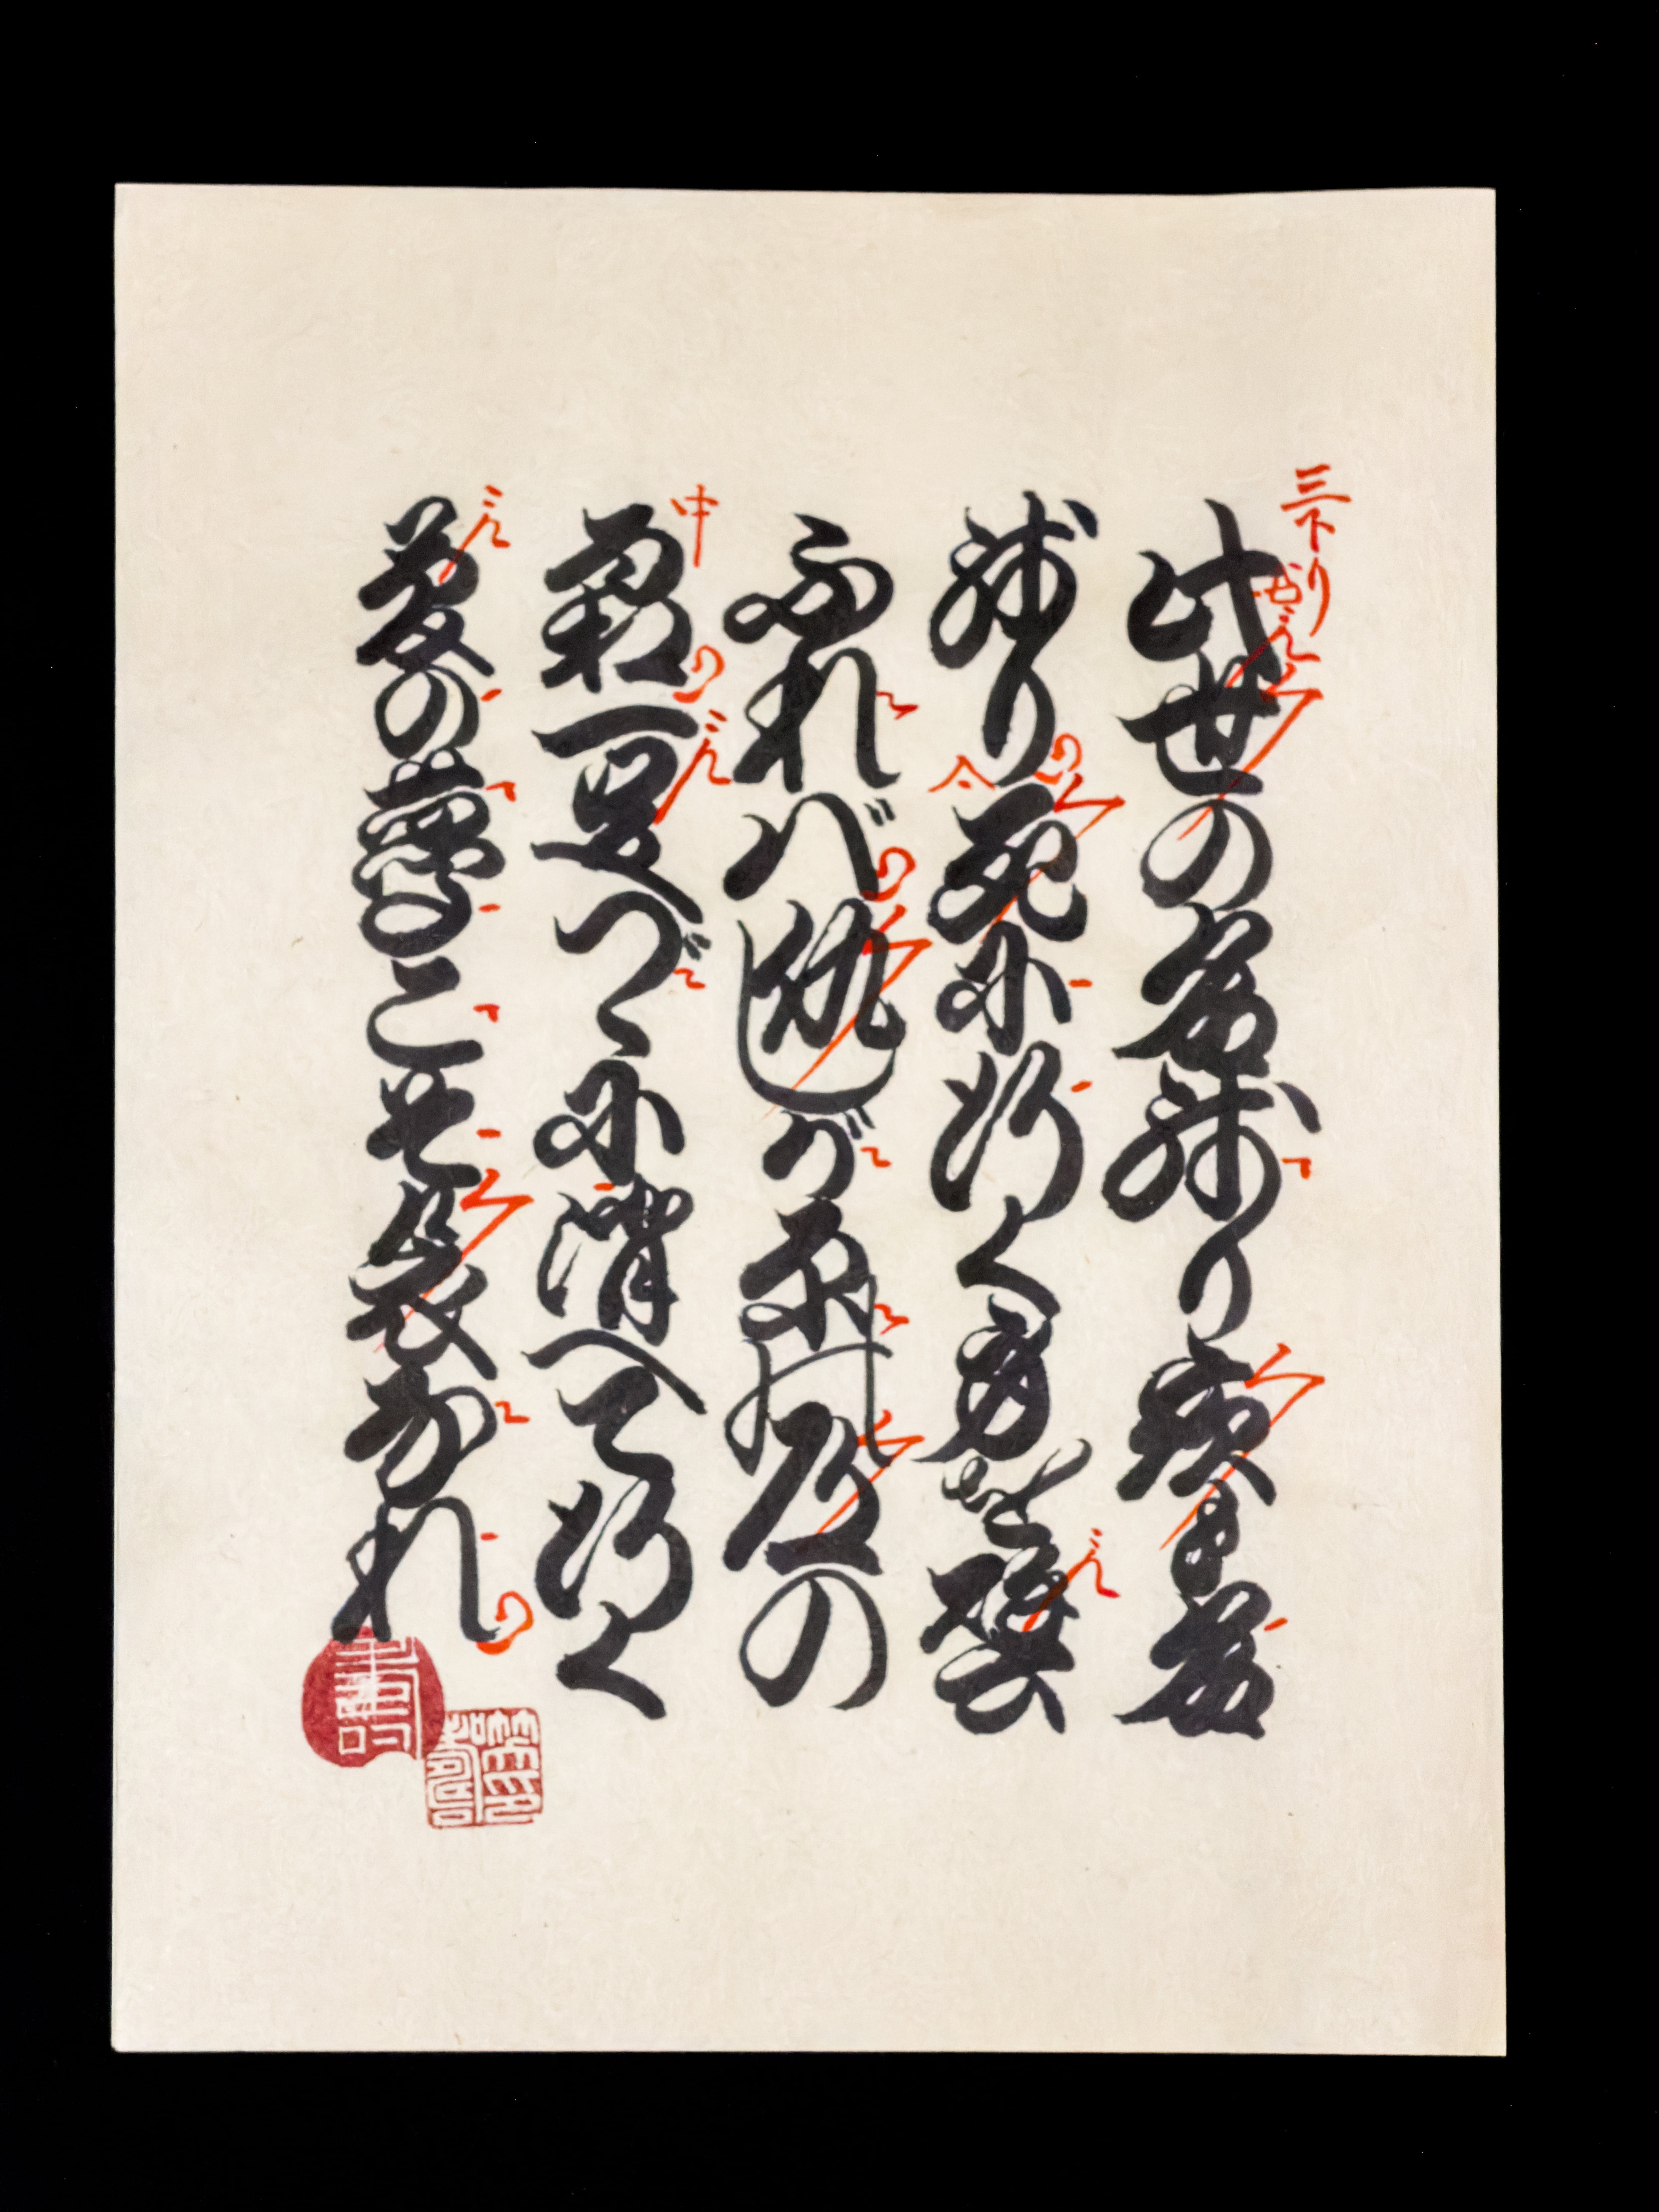 三下り
此世の名残り夜も名
残り死に行く身を譬
ふれば仇しが原の道の
中
霜一足づゝに消へて行く
夢の夢こそ哀なれ
壽